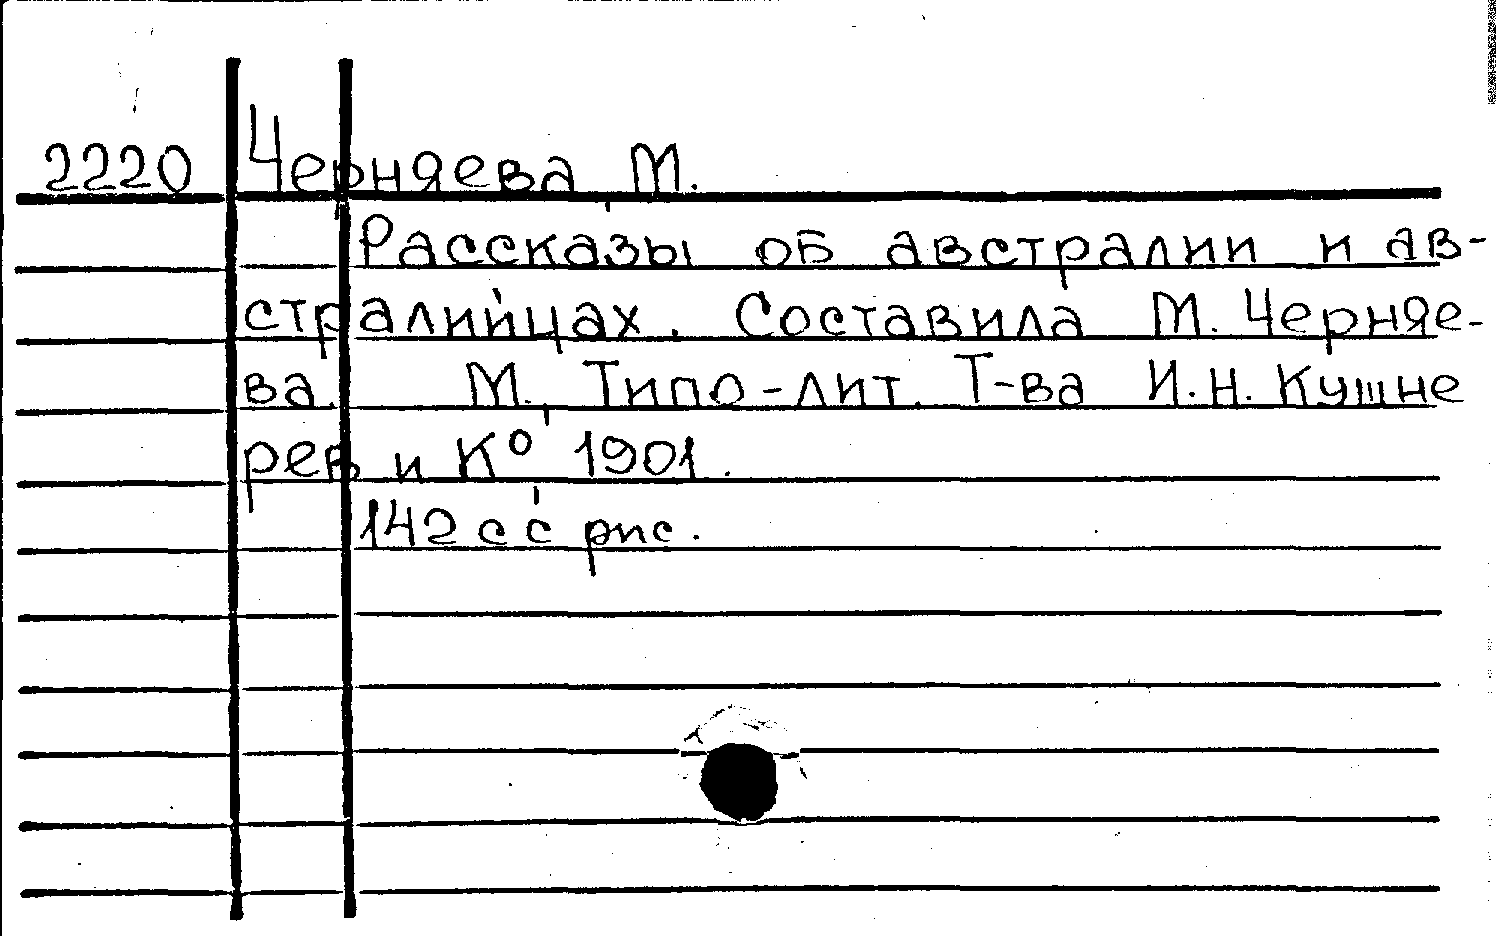 2220 Черняева М.
Рассказы об австралии и ав-
стралийцах. Составила М. Черняе-
ва. М. Типо-лит. Т-ва И.Н. Кушне
рев и К° 1901.
142 с с рис.